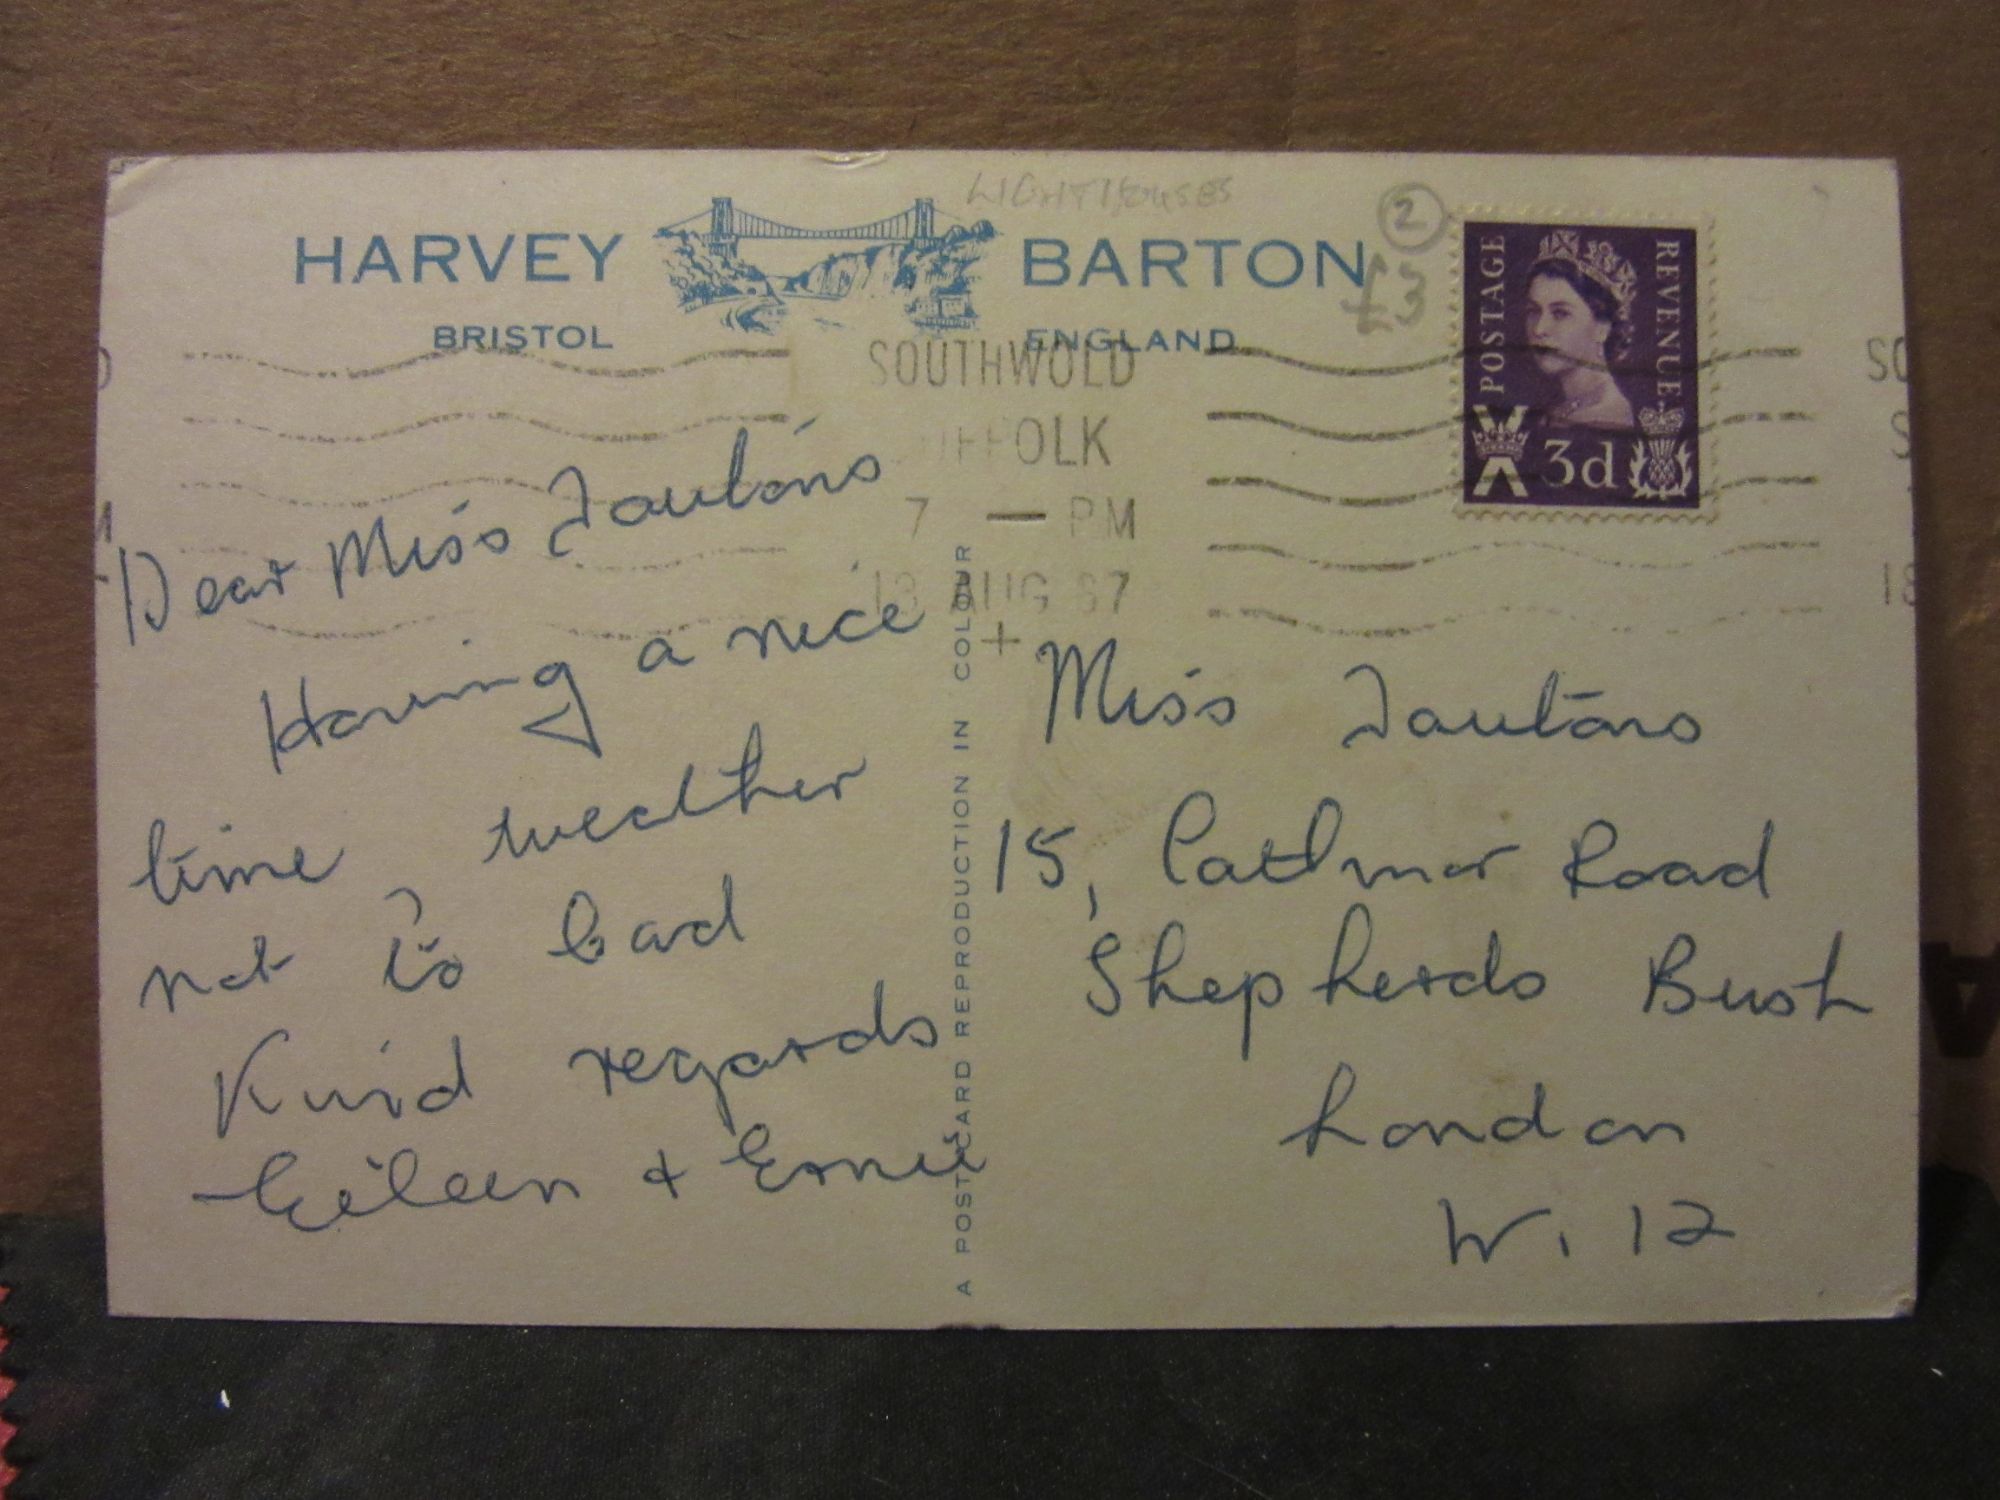 LIGHTHOUSES
2
£3
HARVEY BARTON
BRISTOL ENGLAND
POSTAGE REVENUE
3d
SOUTHWOLD
SUFFOLK
7 — PM
AUG 67
Dear Miss
Having a nice
time weather
not to bad
Kind regards
Eileen + Ernie
A POSTCARD REPRODUCTION IN COLOUR
Miss
15, Cathnor Road
Shepherds Bush
London
W. 12